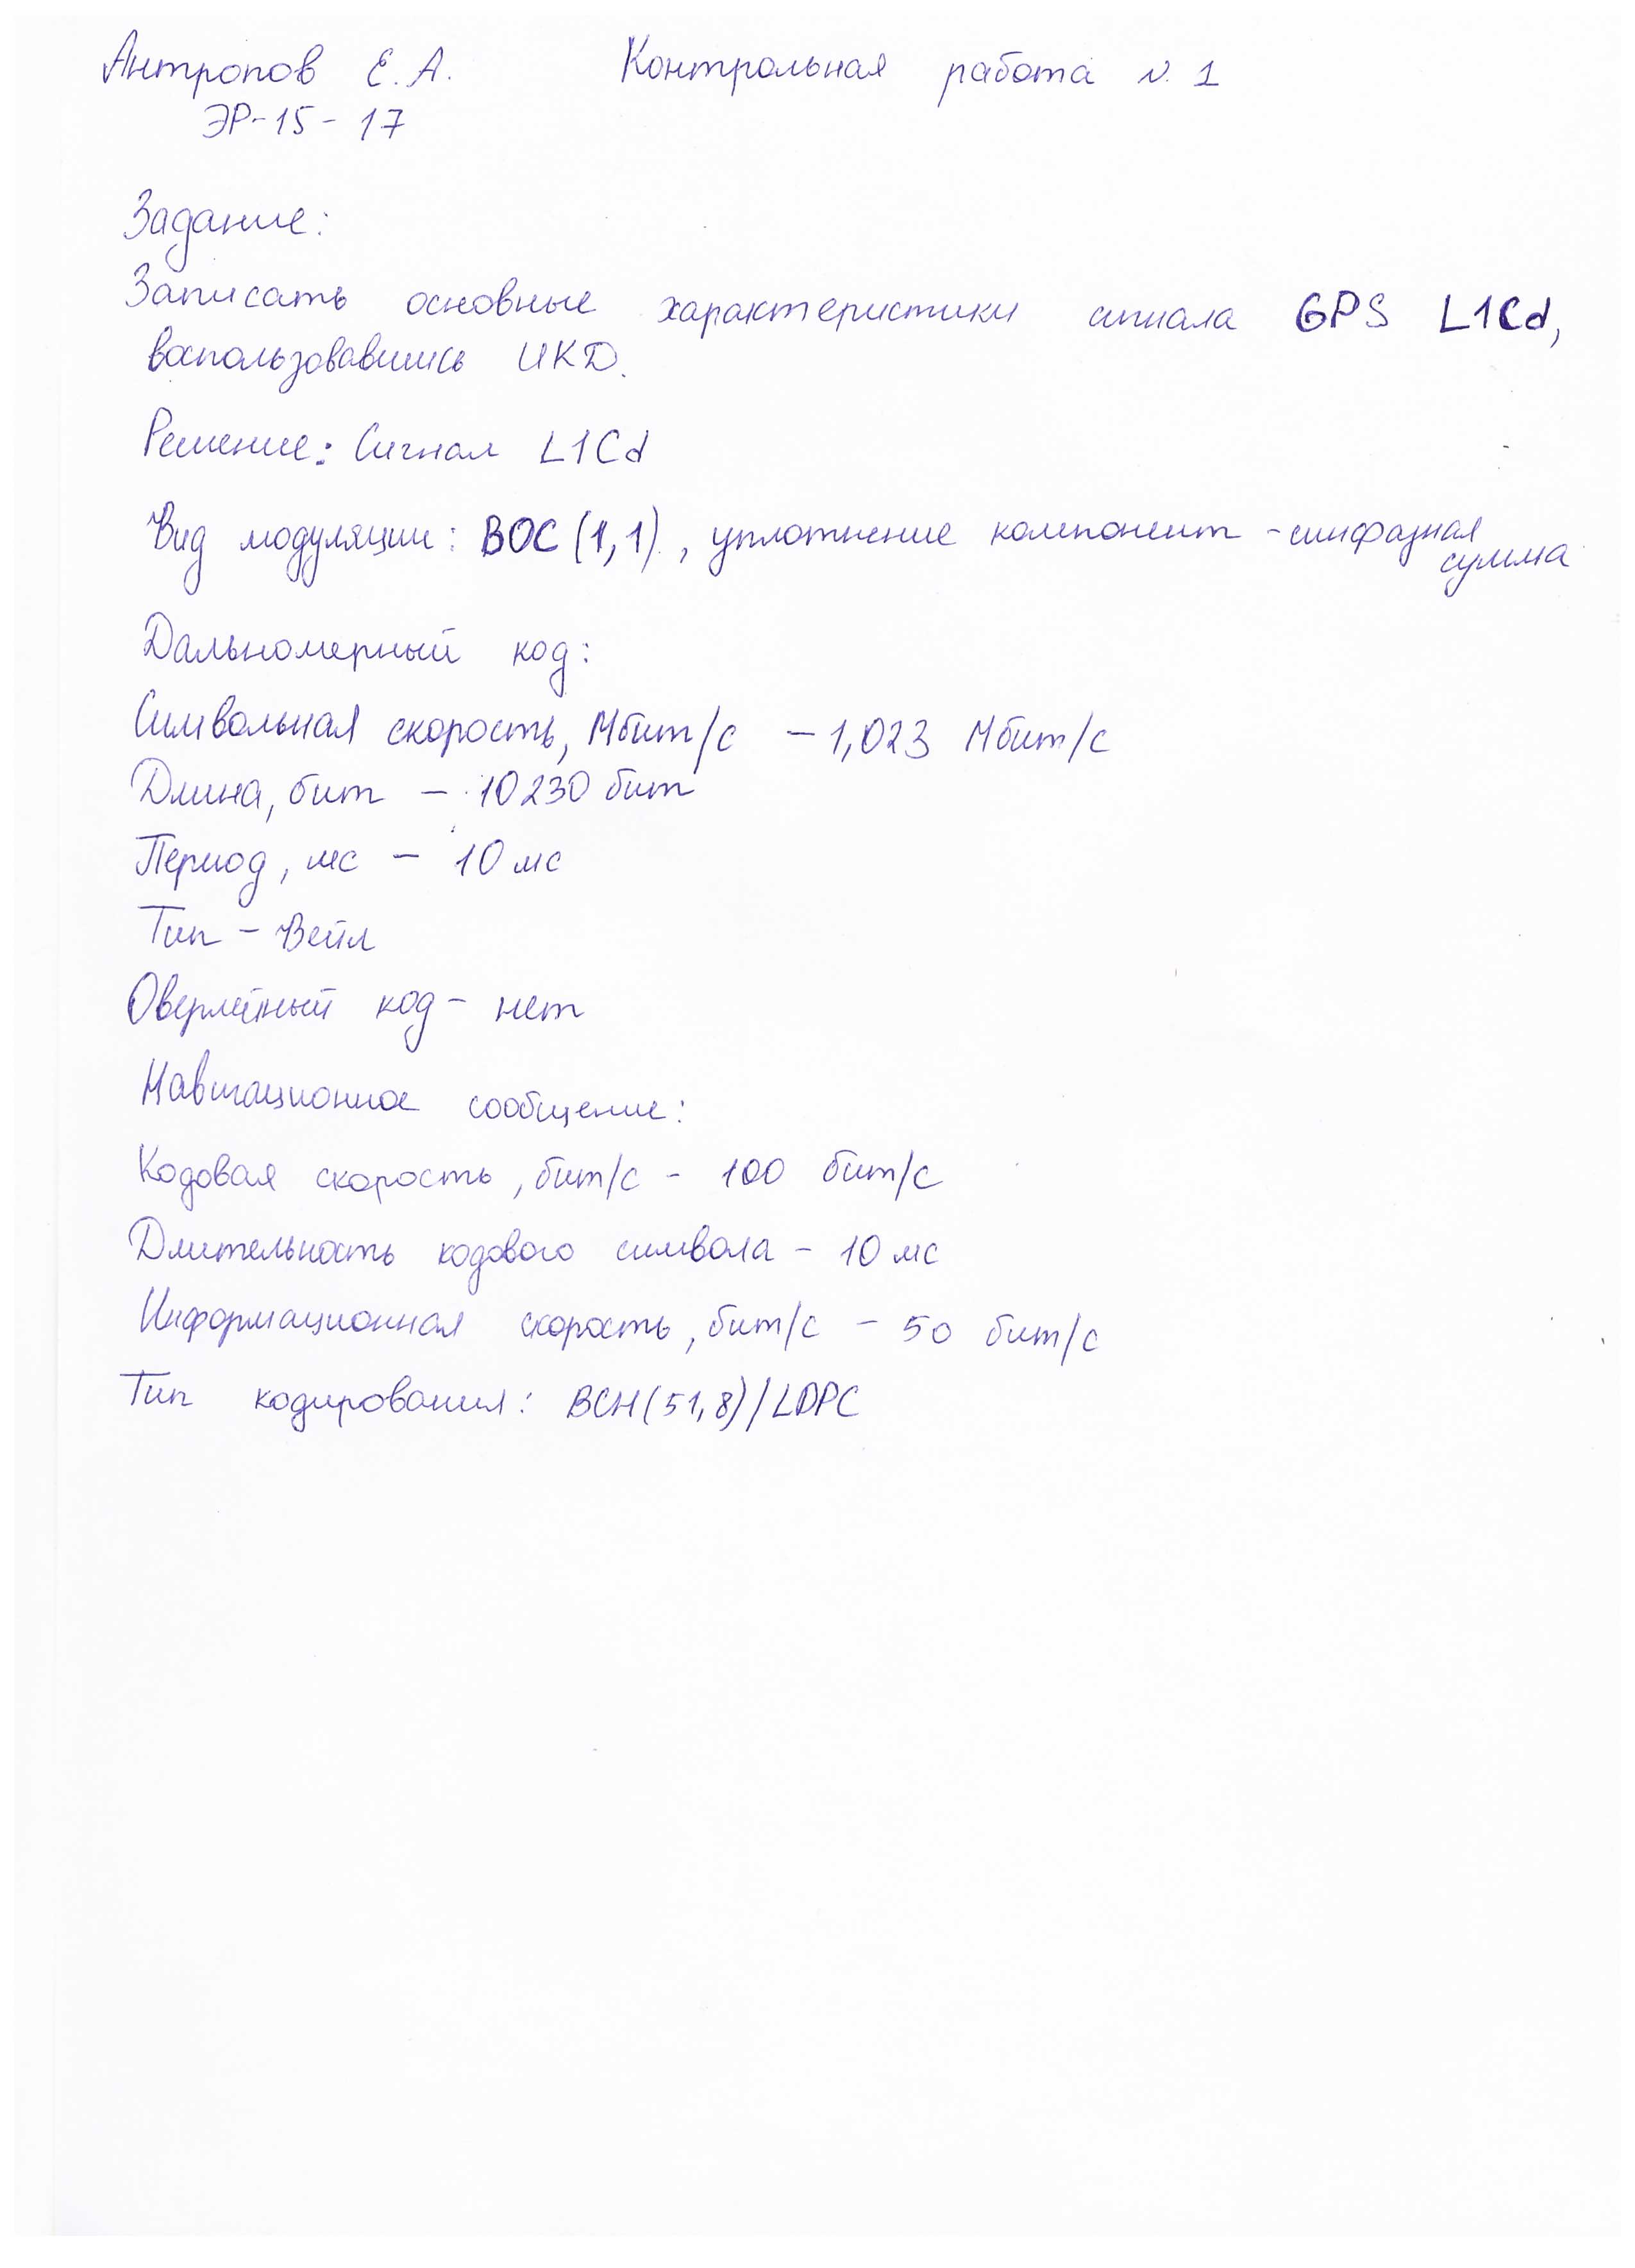 Антропов Е.А. Контрольная работа N. 1
ЭР-15-17
Задание:
Записать основные характеристики сигнала GPS L1Cd,
воспользовавшись ИКД.
Решение: Сигнал L1Cd
Вид модуляции: BOC(1,1), уплотнение компонент - синфазная
сумма
Дальномерный код:
Символьная скорость, Мбит/с – 1,023 Мбит/с
Длина, бит – 10230 бит
Период, мс – 10 мс
Тип – Вейл
Оверлейный код – нет
Навигационное сообщение:
Кодовая скорость, бит/с - 100 бит/с
Длительность кодового символа – 10 мс
Информационная скорость, бит/с – 50 бит/с
Тип кодирования: BCH(51,8)/LDPC